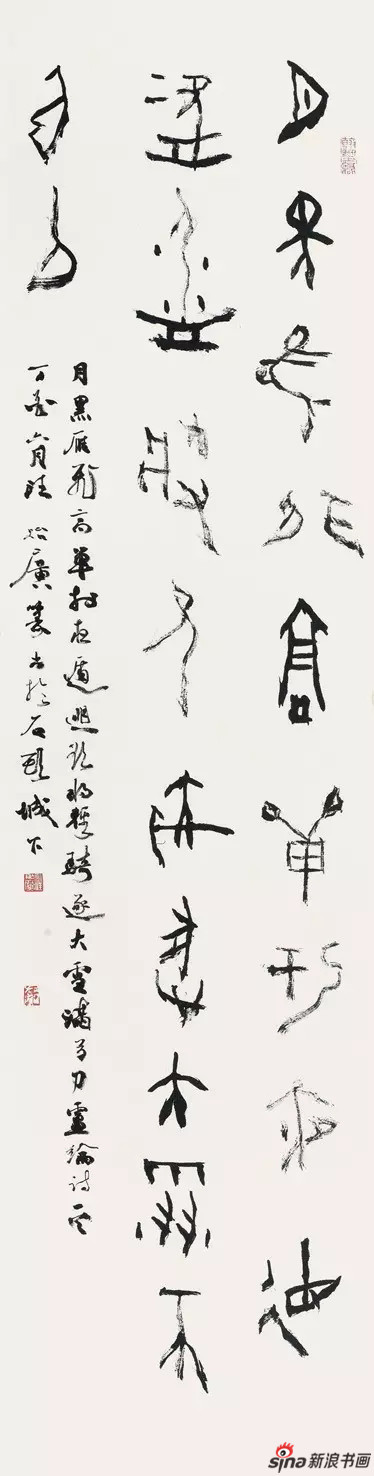 月黑雁飛高單于夜遁
逃欲將輕騎逐大雪滿
弓刀
月黑雁飛高單于夜遁逃欲將輕騎逐大雪滿弓刀盧綸詩
丁酉六月 書於石頭城下
sina新浪书画